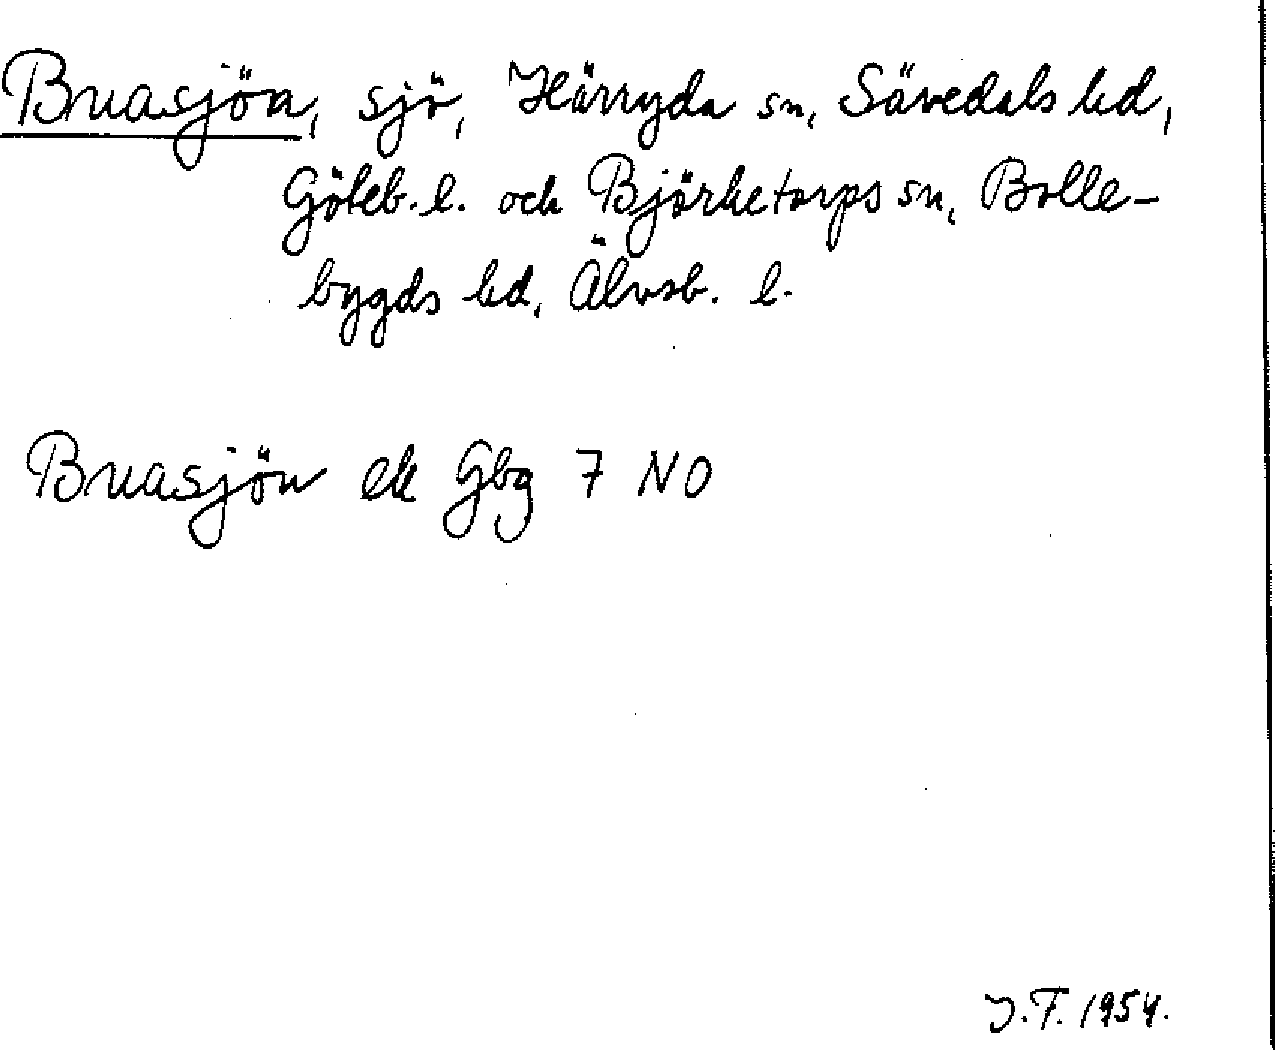 Buasjöa, sjö, Härryda sn, Sävedals hd,
Göteb. l. och Björketorps sn, Bolle-
bygds hd, Älvsb. l.
Buasjön ek Gbg 7 NO
J.F. 1954.